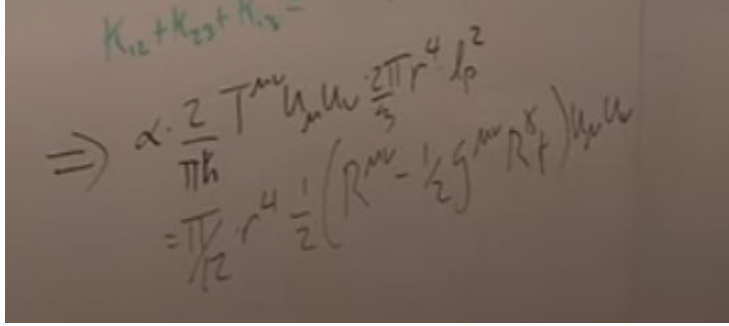 K₁₂ + K₂₃ + K₁₃ =
⇒ α · 2/(πħ) T^{μν} u_μ u_ν · 2π/3 r⁴ l_p²
= π/12 · r⁴ 1/2 (R^{μν} - 1/2 g^{μν} R^γ_γ) u_μ u_ν